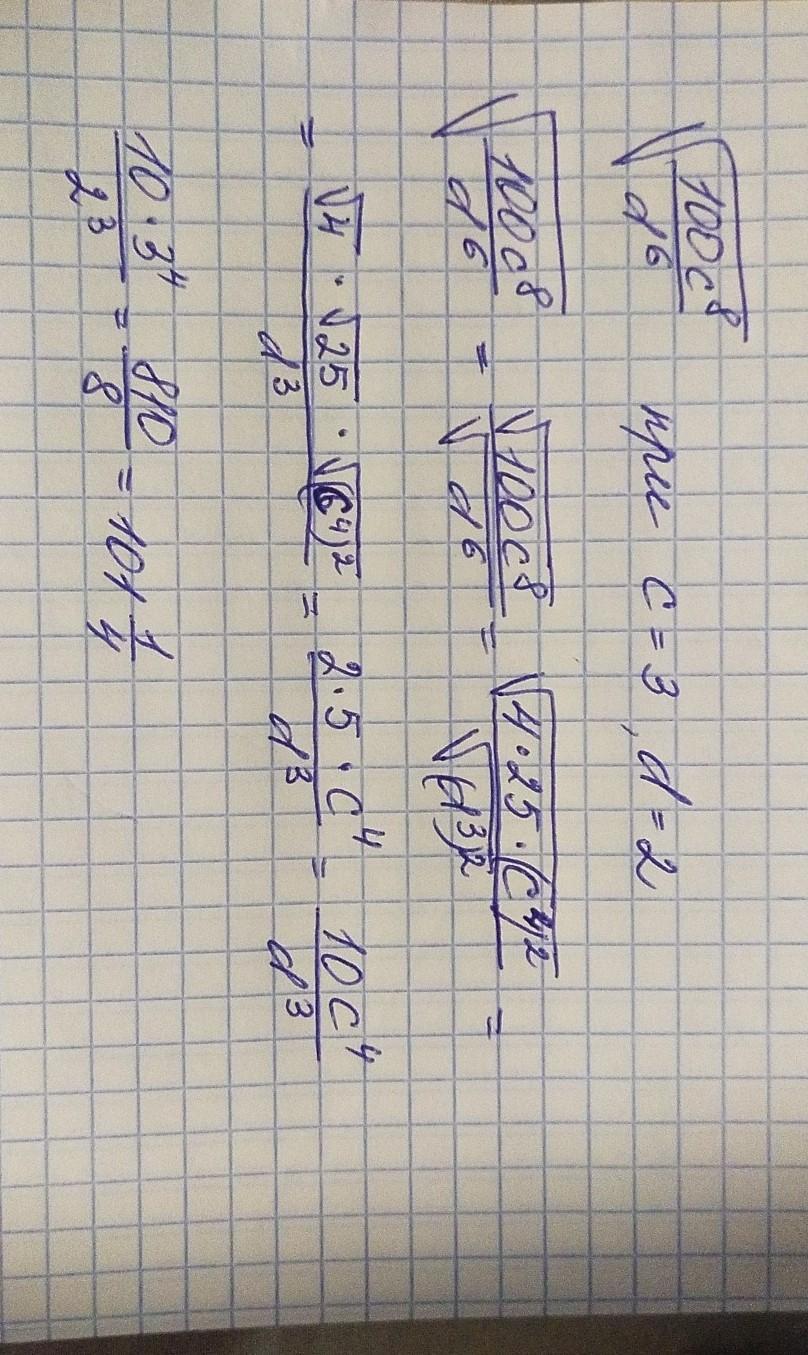 √(100c⁸/d⁶) при c = 3, d = 2
√(100c⁸/d⁶) = √(100c⁸)/√(d⁶) = √(4·25·(c⁴)²)/√((d³)²) =
= (√4 · √25 · √((c⁴)²))/d³ = (2·5·c⁴)/d³ = 10c⁴/d³
(10·3⁴)/2³ = 810/8 = 101 1/4